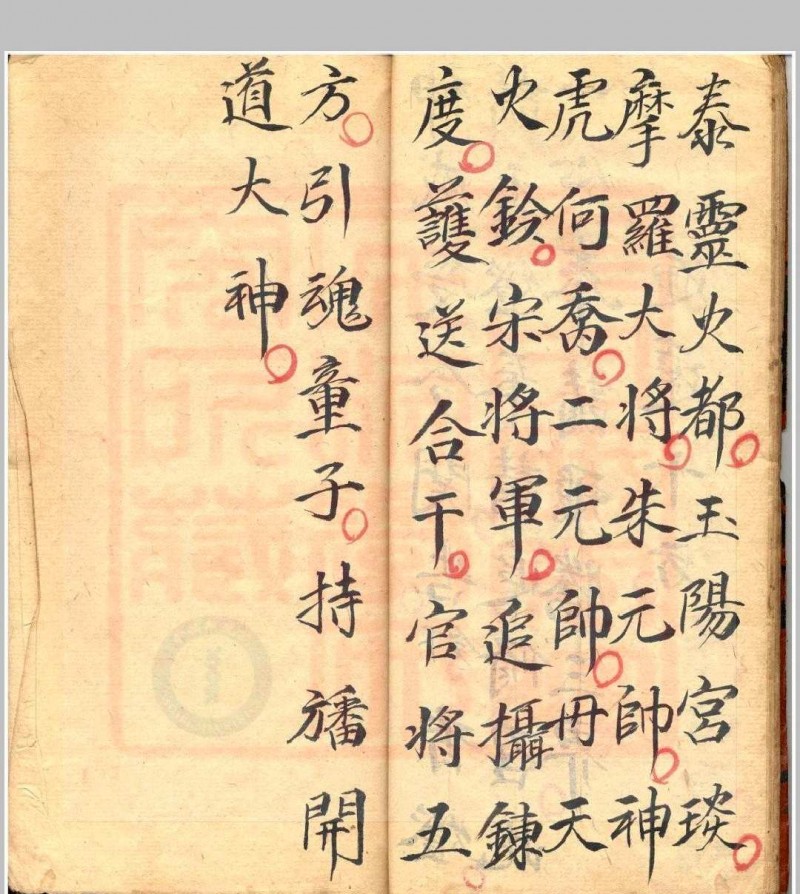 泰靈火都玉陽宮琰
摩羅大將朱元帥神
虎何喬二元帥冊天
火鈴宋將軍追攝鍊
度護送合干官將五
方引魂童子持旛開
道大神